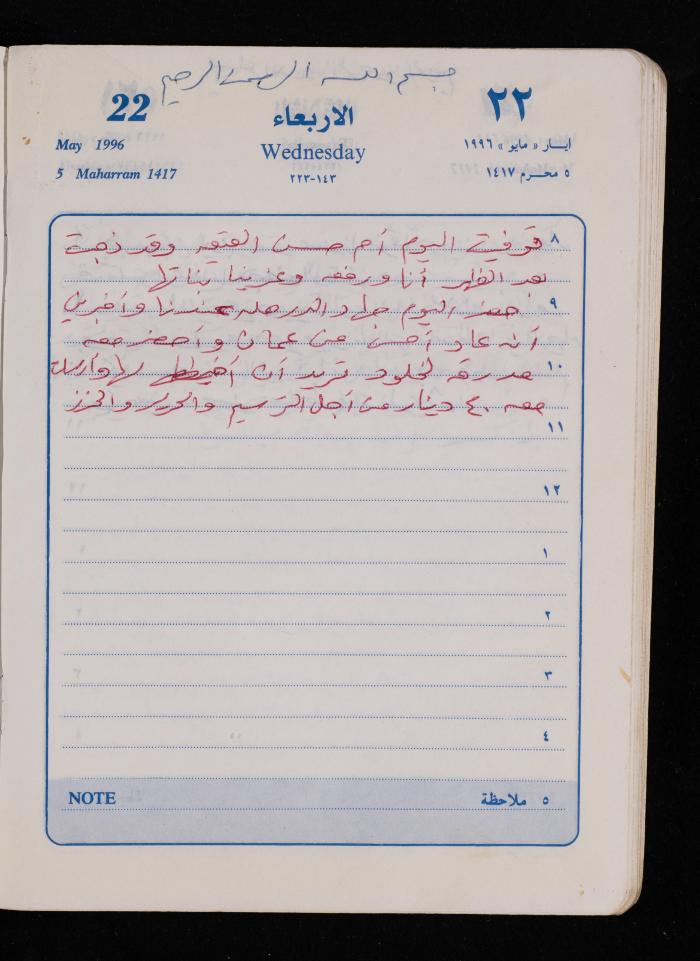 بسم الله الرحمن الرحيم
22 الاربعاء ٢٢
May 1996 Wednesday ايـار « مايو » ١٩٩٦
5 Maharram 1417 ١٤٣-٢٢٣ ٥ محـرم ١٤١٧
٨ توفيت اليوم أم حسن العتقه وقد ذهبت
بعد الظهر أنا ورفقه وعزينا بناتها
٩ حضر اليوم جهاد عندنا وأخبرني
أنه عاد أمس من عمان وأحضر معه
١٠ مدرقه لخلود تريد أن أخيط لها وأرسلت
معه ٤٠ دينار من أجل الترسيم والحرير والخرز
١١
١٢
١
٢
٣
٤
NOTE ٥ ملاحظة